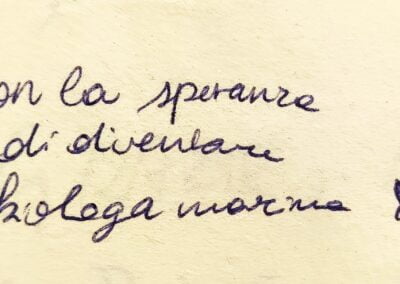 on la speranza
di diventare
biologa marina